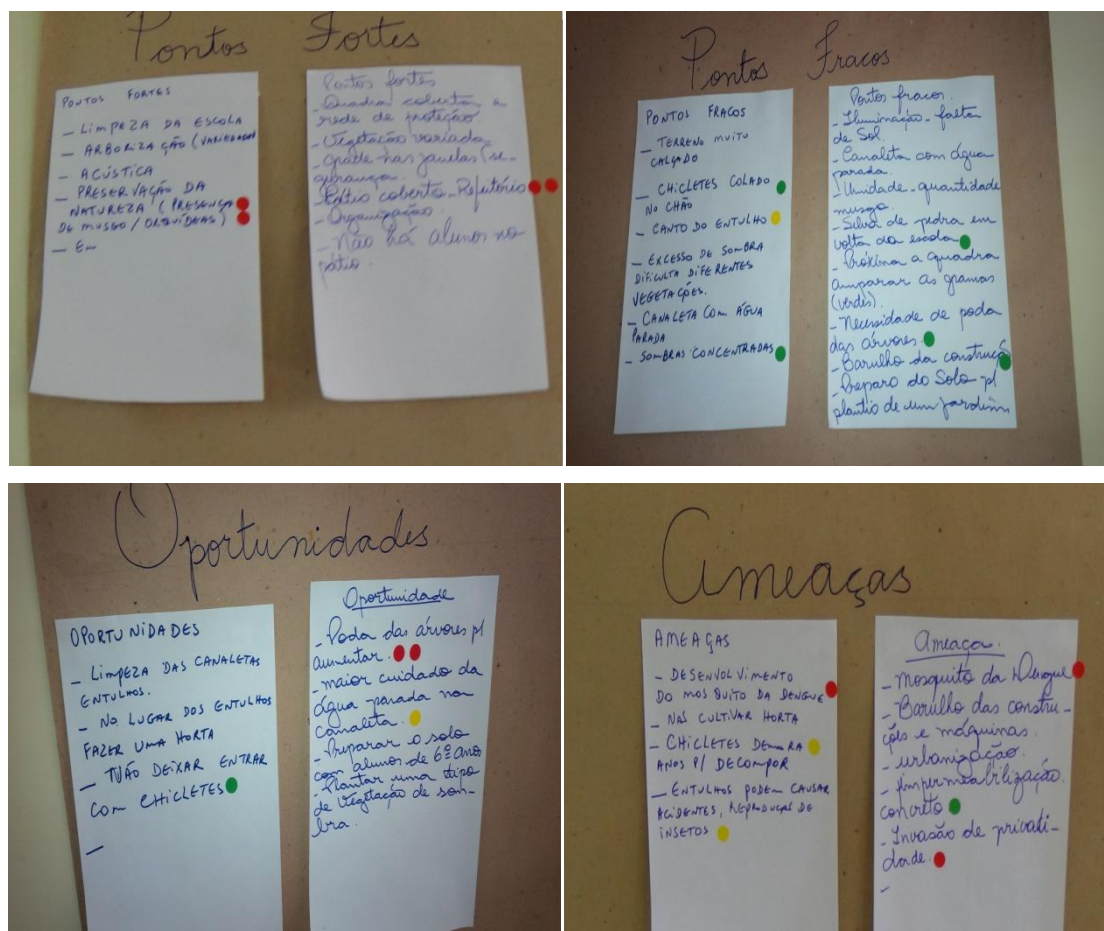 Pontos Fortes
PONTOS FORTES
– LIMPEZA DA ESCOLA
– ARBORIZAÇÃO (VARIEDADE)
– ACÚSTICA
– PRESERVAÇÃO DA
NATUREZA (PRESENÇA
DE MUSGO / ORQUÍDEAS)
– E
Pontos fortes
- Quadra coberta e
rede de proteção
- Vegetação variada
- grade nas janelas (se-
gurança.
- Pátio coberto - Refeitório
- Organização.
- Não há alunos no
pátio.
Pontos Fracos
PONTOS FRACOS
– TERRENO MUITO
CALÇADO
– CHICLETES COLADO
NO CHÃO
– CANTO DO ENTULHO
– EXCESSO DE SOMBRA
DIFICULTA DIFERENTES
VEGETAÇÕES.
– CANALETA COM ÁGUA
PARADA
– SOMBRAS CONCENTRADAS
Pontos fracos.
- Iluminação - falta
de Sol.
- Canaleta com água
parada.
- Umidade - quantidade
musgo.
- Selva de pedra em
volta da escola
- Próxima a quadra
amparar as gramas
(verdes).
- Necessidade de poda
das árvores.
- Barulho da construção
- Preparo do Solo p/
plantio de um jardim
Oportunidades
OPORTUNIDADES
– LIMPEZA DAS CANALETAS
ENTULHOS.
– NO LUGAR DOS ENTULHOS
FAZER UMA HORTA
– NÃO DEIXAR ENTRAR
COM CHICLETES
–
Oportunidade
- Poda das árvores p/
aumentar.
- maior cuidado da
água parada na
canaleta.
- Preparar o solo
com alunos de 6º ano
- Plantar uma tipo
de vegetação de som-
bra.
Ameaças
AMEAÇAS
– DESENVOLVIMENTO
DO MOSQUITO DA DENGUE
– NAS CULTIVAR HORTA
– CHICLETES DEMORA
ANOS P/ DECOMPOR
– ENTULHOS PODEM CAUSAR
ACIDENTES, REPRODUÇÃO DE
INSETOS
Ameaça.
- Mosquito da Dengue
- Barulho das constru-
ções e máquinas.
- urbanização.
- Impermeabilização.
concreto
- Invasão de privaci-
dade.
-